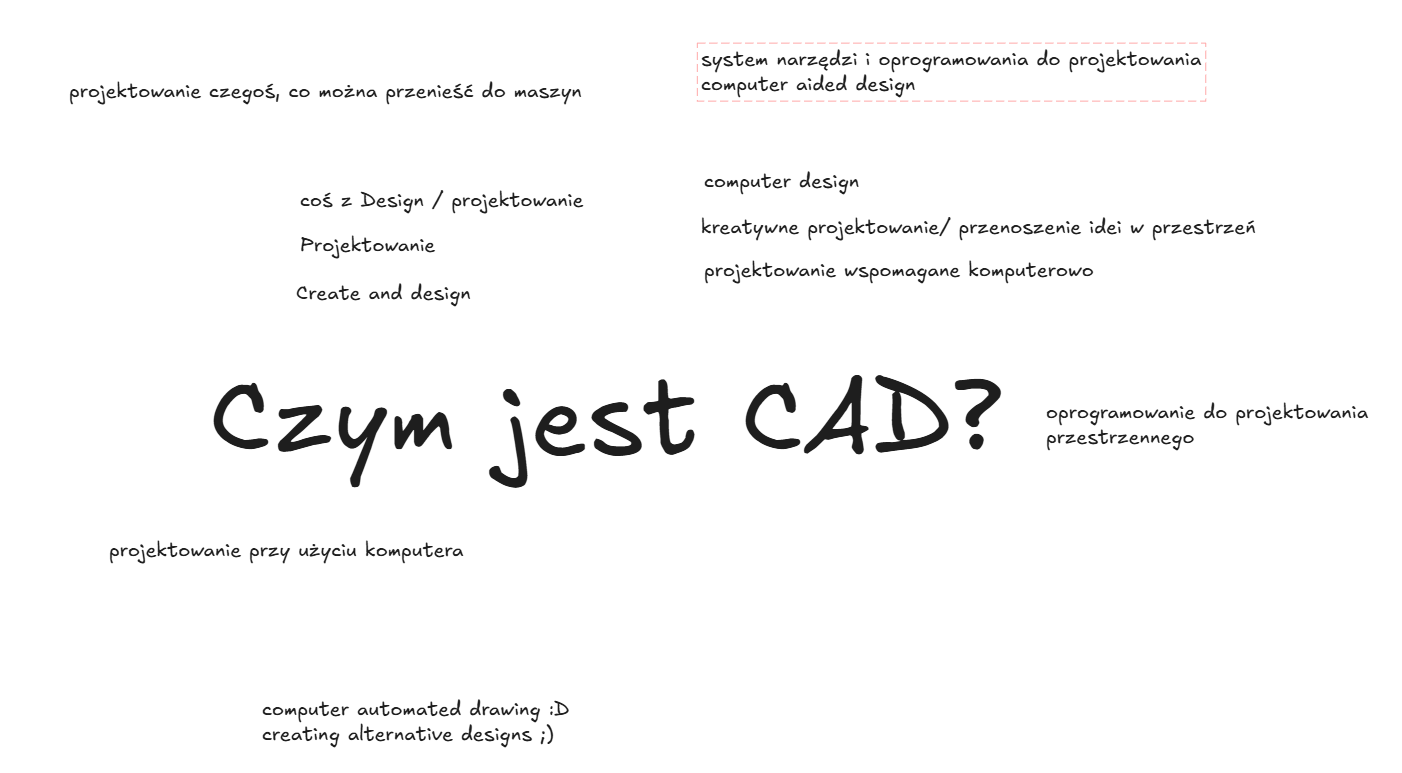 system narzędzi i oprogramowania do projektowania
computer aided design
projektowanie czegoś, co można przenieść do maszyn
computer design
coś z Design / projektowanie
kreatywne projektowanie/ przenoszenie idei w przestrzeń
Projektowanie
projektowanie wspomagane komputerowo
Create and design
Czym jest CAD?
oprogramowanie do projektowania
przestrzennego
projektowanie przy użyciu komputera
computer automated drawing :D
creating alternative designs ;)